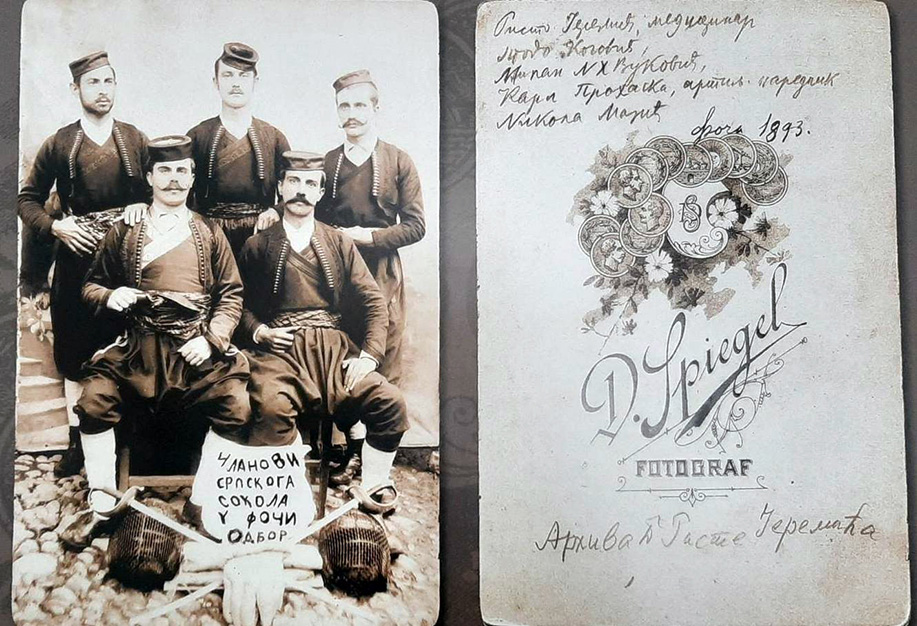 ЧЛАНОВИ
СРПСКОГА
СОКОЛА
У ФОЧИ
ОДБОР
Ристо Јеремић, медицинар
Милан Вуковић,
Карл Прохаска, артиљ. наредник
Никола
Фоча 1893.
D. Spiegel
FOTOGRAF
Архива Ристе Јеремића